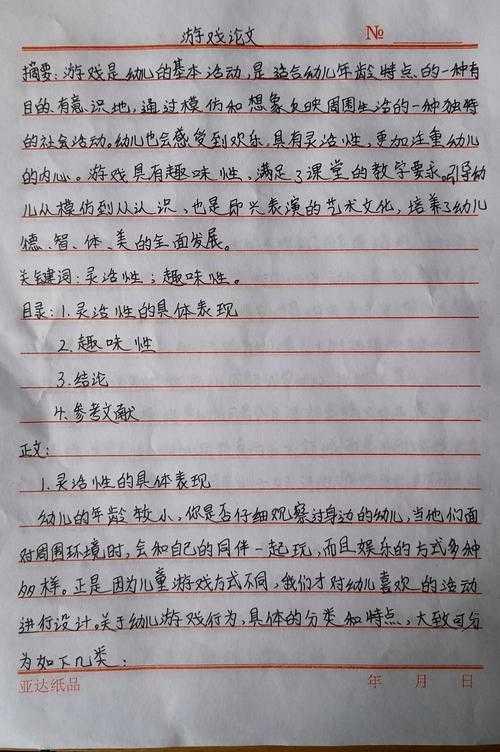 游戏论文 №
摘要:游戏是幼儿的基本活动,是适合幼儿年龄特点的一种有
目的有意识地,通过模仿和想象反映周围生活的一种独特
的社会活动。幼儿也会感受到欢乐,具有灵活性,更加注重幼儿
的内心。游戏具有趣味性,满足了课堂的教学要求。引导幼
儿从模仿到从认识,也是即兴表演的艺术文化,培养了幼儿
德、智、体、美的全面发展。
关键词:灵活性;趣味性。
目录:1.灵活性的具体表现
2.趣味性
3.结论
4.参考文献
正文:
1.灵活性的具体表现
幼儿的年龄较小,你是否仔细观察过身边的幼儿,当他们面
对周围环境时,会和自己的同伴一起玩,而且娱乐的方式多种
多样。正是因为儿童游戏方式不同,我们才对幼儿喜欢的活动
进行设计。关于幼儿游戏行为,具体的分类和特点,大致可分
为如下几类:
亚达纸品 年 月 日